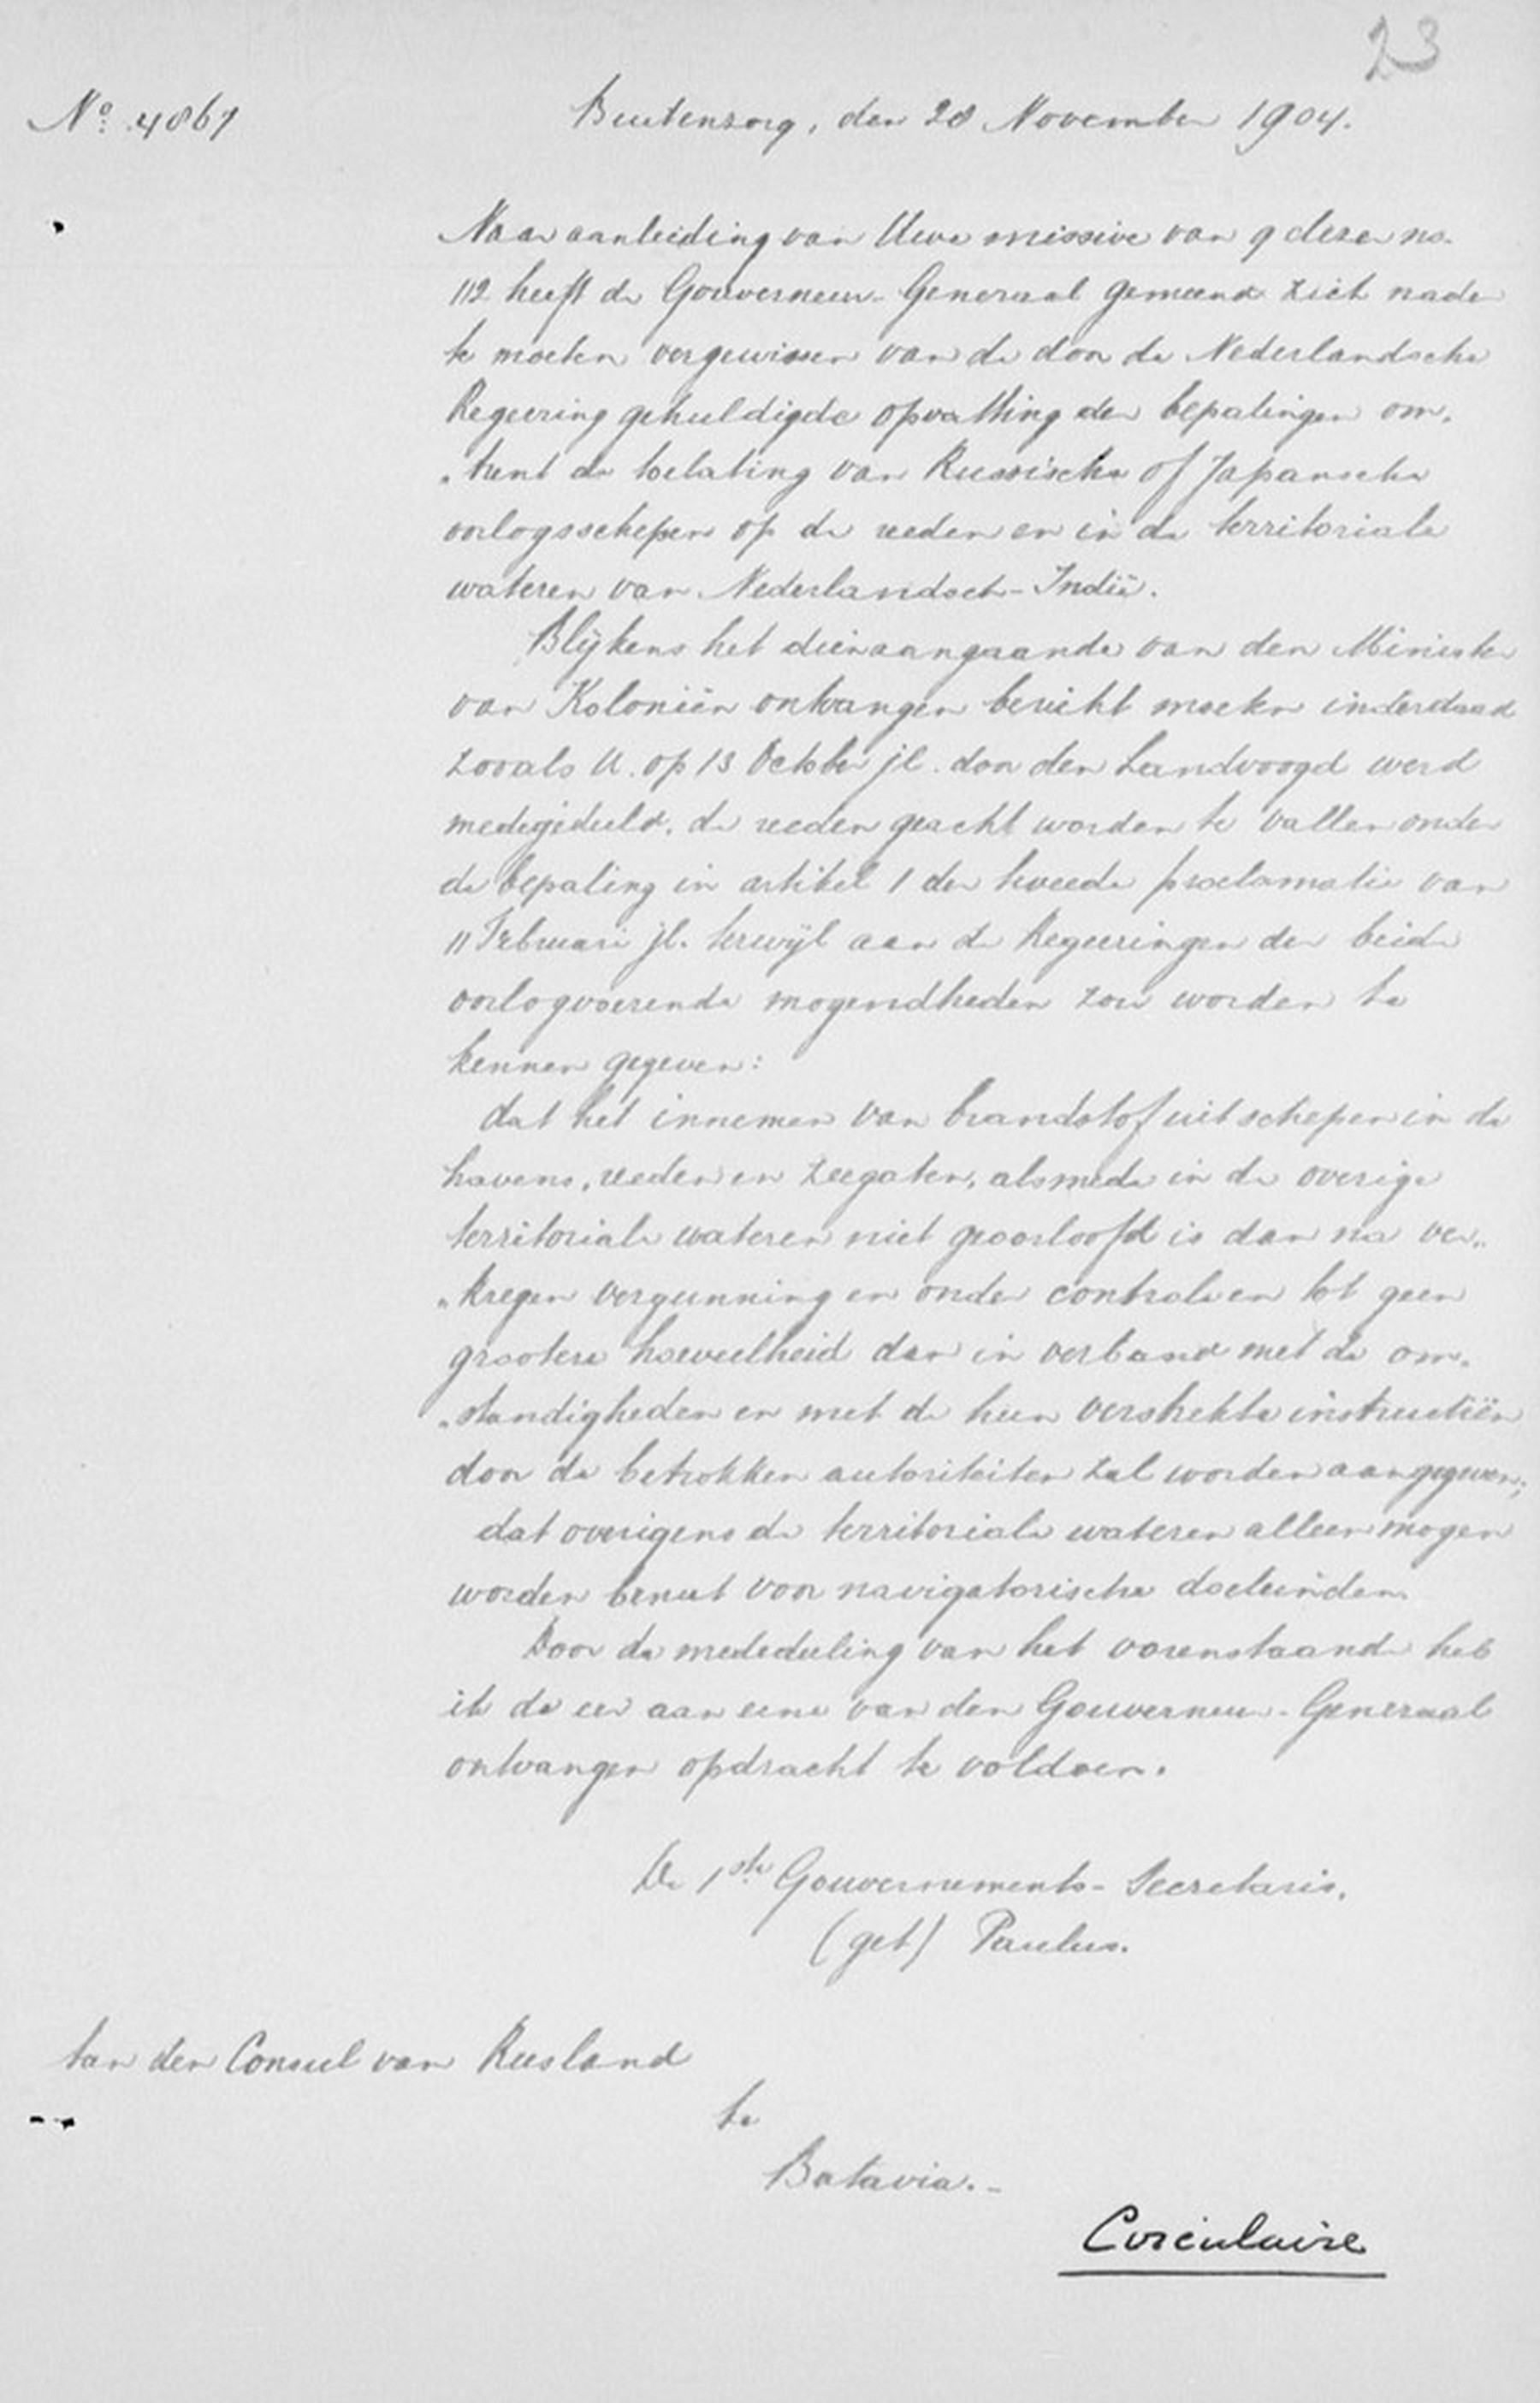 23
No. 4867
Buitenzorg, den 28 November 1904.
Naar aanleiding van Uwe missive van 9 dezer no.
112 heeft de Gouverneur-Generaal gemeend zich nader
te moeten vergewissen van de door de Nederlandsche
Regeering gehuldigde opvatting der bepalingen om„
„trent de toelating van Russische of Japansche
oorlogsschepen op de reeden en in de territoriale
wateren van Nederlandsch-Indië.
Blijkens het dienaangaande van den Minister
van Koloniën ontvangen bericht moeten inderdaad
zooals U. op 13 October jl. door den Landvoogd werd
medegedeeld, de reeden geacht worden te vallen onder
de bepaling in artikel 1 der tweede proclamatie van
11 Februari jl. terwijl aan de Regeeringen der beide
oorlogvoerende mogendheden zou worden te
kennen gegeven:
dat het innemen van brandstof uit schepen in de
havens, reeden en zeegaten, alsmede in de overige
territoriale wateren niet geoorloofd is dan na ver„
„kregen vergunning en onder controle en tot geen
grootere hoeveelheid dan in verband met de om„
„standigheden en met de hun verstrekte instructiën
door de betrokken autoriteiten zal worden aangegeven;
dat overigens de territoriale wateren alleen mogen
worden benut voor navigatorische doeleinden.
Door de mededeeling van het vorenstaande heb
ik de eer aan eene van den Gouverneur-Generaal
ontvangen opdracht te voldoen.
De 1ste Gouvernements-Secretaris,
(get) Paulus.
Aan den Consul van Rusland
te
Batavia.-
Circulaire